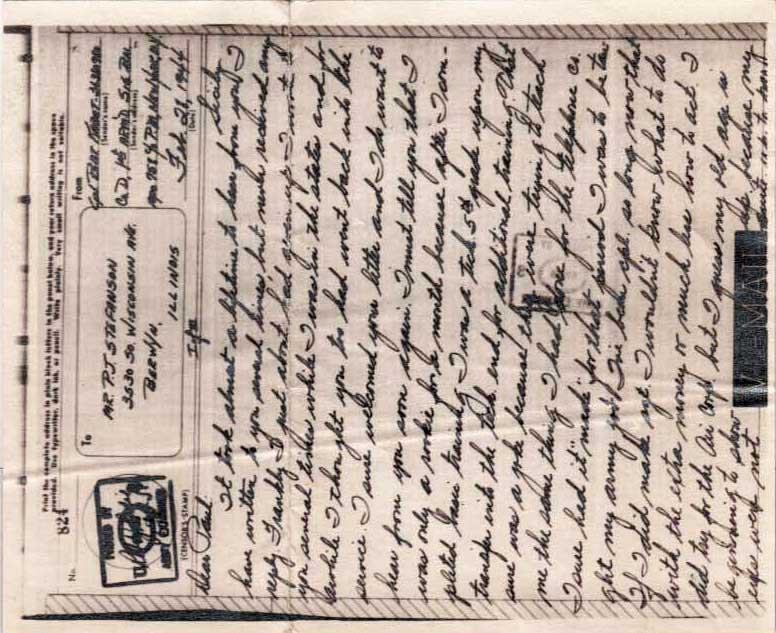 Print the complete address in plain block letters in the panel below, and your return address in the space
provided. Use typewriter, dark ink, or pencil. Write plainly. Very small writing is not suitable.
No.
824
To
From
MR. P.J. STEFANSON
3530 SO. WISCONSIN AVE.
BERWYN,
ILLINOIS
(Sender's name)
Co. D, 1st ARMD. SIG. BN.
(Sender's address)
Feb. 28, 1944
(Date)
PASSED BY
ARMY EXAMINER
(CENSOR'S STAMP)
Sicily
Dear Paul
It took almost a lifetime to hear from you, I
have written to you several times but never received any
reply. Frankly I just about had given up. I wrote to
you several times while I was in the states and for
awhile I thought you too had went back into the
service. I sure welcomed your letter and I do want to
hear from you soon again. I must tell you that I
was only a rookie for a month because after I com-
pleted basic training I was a tech 5th grade upon my
transfer into the tech end for additional training. That
sure was a joke because they were trying to teach
me the same thing I had done for the telephone co.
I sure had it "made" for that period. I was to be
my army job. I've been cpl. so long now that
if I did make sgt. I wouldn't know what to do
with the extra money or much less how to act. I
did try for the Air Corps but I guess my old age is
beginning to show because my
eyes were not
V-MAIL